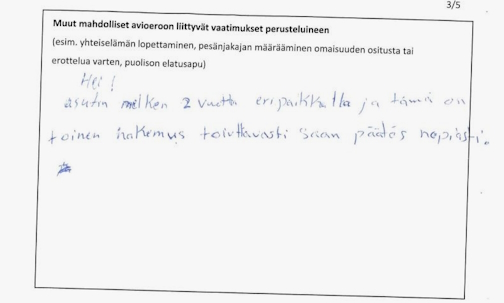 3/5
Muut mahdolliset avioeroon liittyvät vaatimukset perusteluineen
(esim. yhteiselämän lopettaminen, pesänjakajan määrääminen omaisuuden ositusta tai
erottelua varten, puolison elatusapu)
Hei!
asutin melken 2 vuotta eripaikkalla ja tämä on
toinen hakemus toivttavasti saan päätös nopiasti.